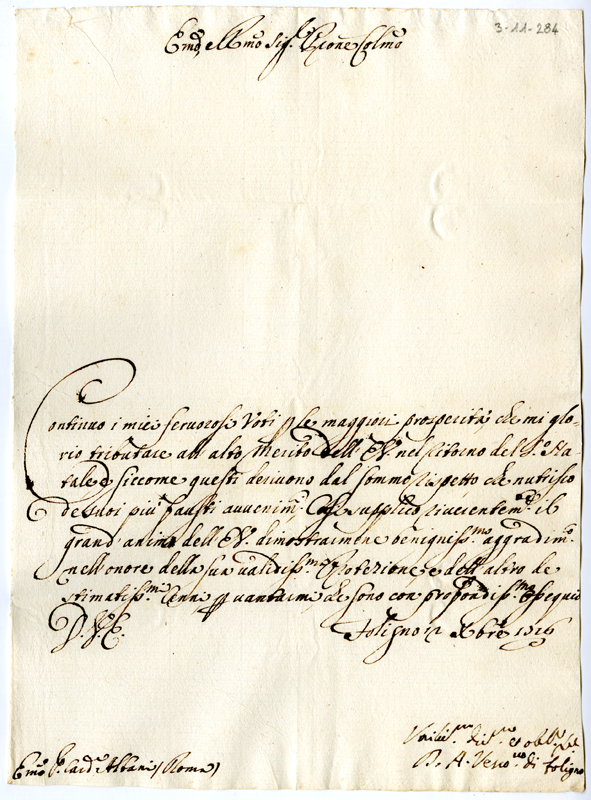 3-11-284
Emo, e Rmo Sigr. Pñone Colmo
Continuo i miei fervorosi Voti p le maggiori prosperità che mi glo-
rio tributare all'alto Merito dell'E.V. nel ritorno del S. Na-
tale e siccome questi derivono dal sommo rispetto che nutrisco
de suoi più fausti avvenimti. supplico riverentemte. il
grand'animo dell'E.V. dimostrarmene benignissmo. aggradimto.
nell'onore della sua validissma. Protezione e dell'altro de
stimatissmi. Cenni p quantunque sono con profondissmo. Ossequio
D. V. E.
Foligno 12 Xbre 1716
Umilissmo. di
B. A. Vescovo di Foligno
Emo Sr. Card. Albani (Roma)